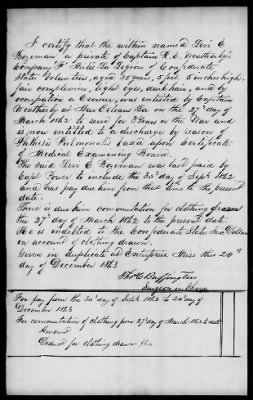 I certify that the within named Levi C
Bozeman a private of Captain R. C. Weatherly's
Company F Miles La Legion of Confederate
States Volunteers, aged 30 years, 5 feet 5 inches high,
fair complexion, light eyes, dark hair, and by
occupation a was enlisted by Captain
Weatherly at New Orleans La on the 27th day of
March 1862 to serve for 3 Years or the War and
is now entitled to a discharge by reason of
Phthisis Pulmonalis based upon Certificate
of Medical Examining Board.
The said Levi C Bozeman was last paid by
Capt to include the 30th day of Sept 1862
and has pay due him from that time to the present
date.
There is due him commutation for clothing
27th day of March 1862 to the present date.
He is indebted to the Confederate States Dollars
on account of clothing drawn.
Given in duplicate at Enterprise Miss the 20th
day of December 1863
Buffington
Surgeon in Charge
For pay from the 30th day of Sept 1862 to 20th day of
December 1863
For commutation of clothing from 27th day of March 1862 to date
Amount
Deduct for clothing drawn